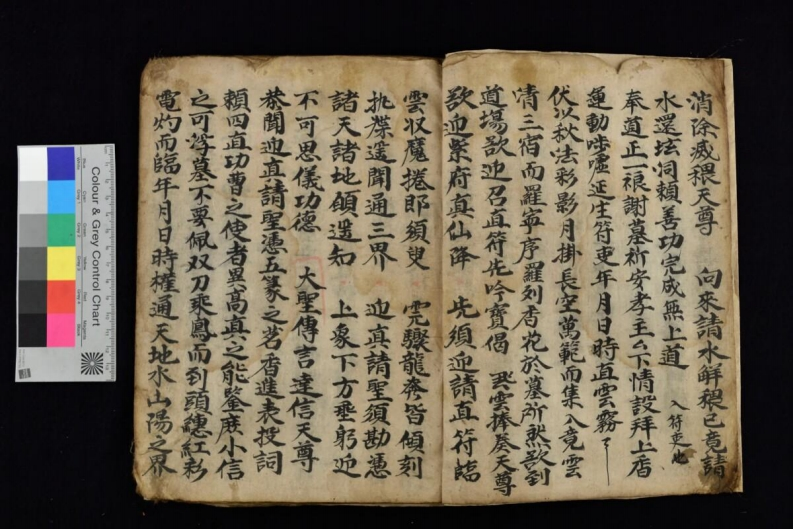 消除滅穢天尊　向來請水解穢已竟請
水還坛洞賴善功完成無上道　入符吏北
奉道正一祿謝墓祈安孝主厶下情設拜上香
運動呼噓延生符吏年月日時直雲霧
伏以秋法彩影月掛長空萬範而集入竟雲
清三宿而羅寧序羅列香花於墓所然欲到
道場欲迎召直符先吟寶偈　乘雲捧奏天尊
欲迎紫府真仙降　先須迎請直符臨
雲収魔捲即須臾　雲驟龍奔皆傾刻
批牒遙聞通三界　迎真請聖須勘憑
諸天諸地領遥知　上象下方垂躬近
不可思儀功德　大聖傳言達信天尊
恭聞迎真請聖憑五篆之茗香進表投詞
賴四直功曹之使者異高真之能鑒庶小信
之可浮墓不要佩双刀乘鳳而到頭纏紅彩
電灼而臨年月日時權通天地水山陽之界
Colour & Grey Control Chart
Blue
Cyan
Green
Yellow
Red
Magenta
White
Grey
Black